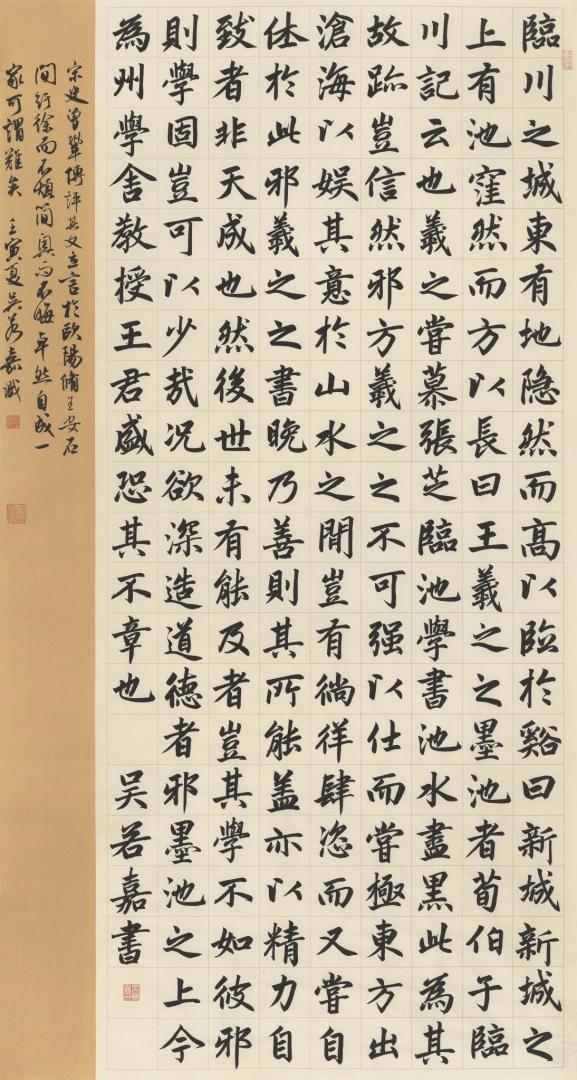 臨川之城東有地隐然而高以臨於谿曰新城新城之
上有池窪然而方以長曰王羲之之墨池者荀伯子臨
川記云也羲之嘗慕張芝臨池學書池水盡黑此為其
故跡豈信然邪方羲之之不可强以仕而嘗極東方出
滄海以娱其意於山水之間豈有徜徉肆恣而又嘗自
休於此邪羲之之書晚乃善則其所能蓋亦以精力自
致者非天成也然後世未有能及者豈其學不如彼邪
則學固豈可以少哉況欲深造道德者邪墨池之上今
為州學舍教授王君盛恐其不章也 吴若嘉書
宋史曾鞏傳評其文立言於歐陽脩王安石
間紆徐而不煩簡奥而不晦卓然自成一
家可謂難矣 壬寅夏吴若嘉識